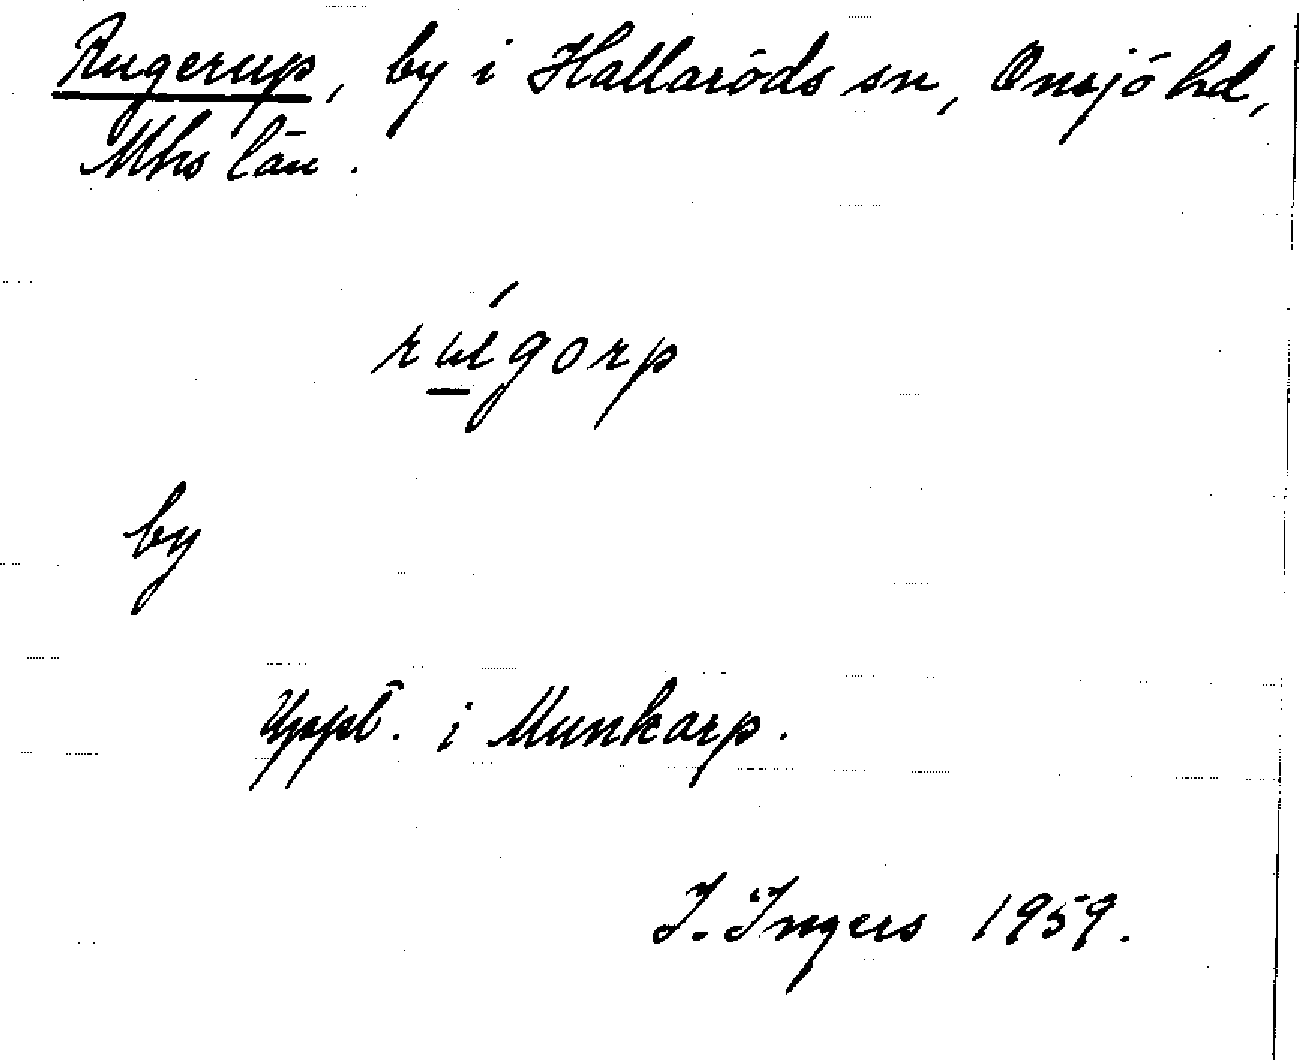 Rugerup, by i Hallaröds sn, Onsjö hd,
Mhs län.
by
Uppt. i Munkarp.
I. Ingers 1959.